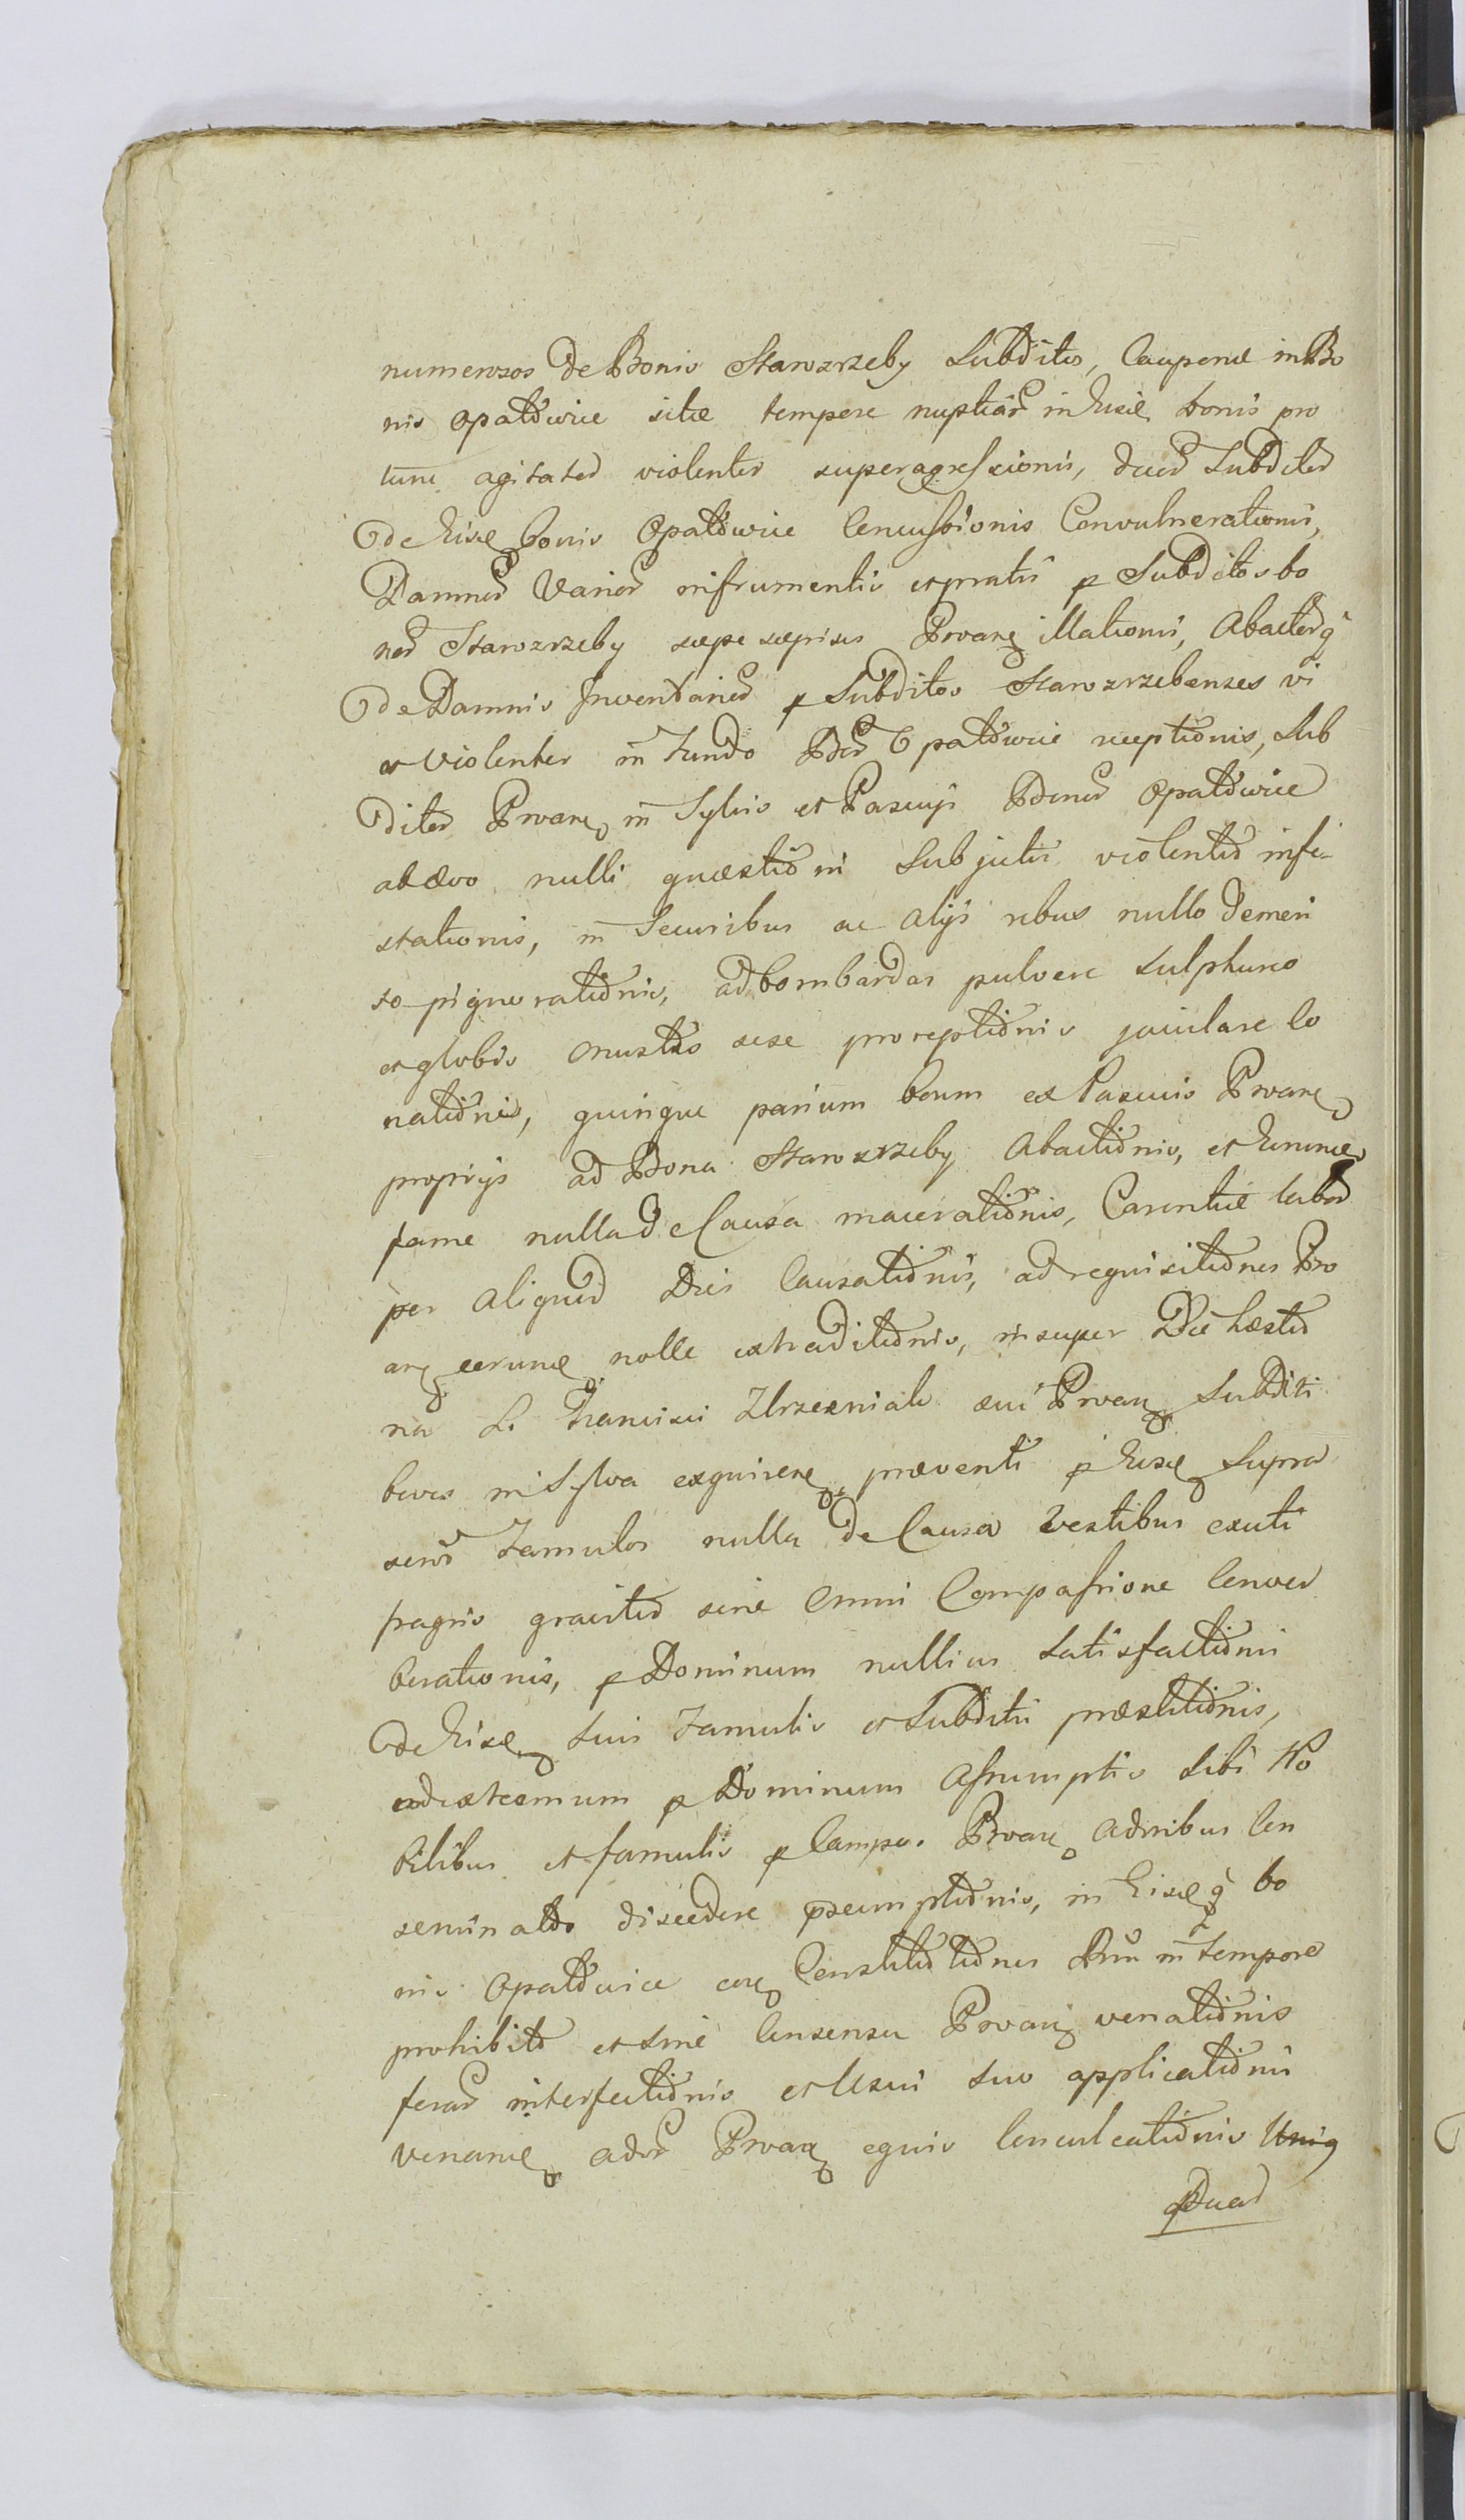 numerosos de Bonis Starozrzeby Subditos, Cauponæ in Bo
nis Opatowice sitæ tempore nuptiar in hisce bonis pro
tunc agitatar violenter superagressionis, duor Subditor
de hisce bonis Opatowice Concussionis Convulnerationis,
Damnor Varior in frumentis et pratis p Subditos bo
nor Starozrzeby sæpe sæpius Illationis, Abactorq
de Damnis Inventarior p Subditos Starozrzebenses vi
et violenter in fundo Bnor Opatowice receptionis, Sub
ditor in Sylvis et Pascuis Bonor Opatowice
ab ævo nulli quæstioni Subjectis violentæ infe-
stationis, in Securibus ac alijs rebus nullo demeri
to pignorationis, ad bombardas pulvere sulphureo
et globis onustas sese proreptionis jaculare Co
nationis, quinque parium boum ex Pascuis
proprijs ad Bona Starozrzeby Abactionis, et
fame nulla de Causa macerationis, Carentiæ labor
per aliquod Dies Causationis, ad requisitiones
nolle extraditionis, insuper
Francisci Subditi
boves in Sylva præventi p hosce Supra
famulos nulla de Causa vestibus exuti
plagis graviter sine omni Compassione Conver
berationis, p Dominum nullius Satisfactionis
de hisce Suis famulis et Subditis præstitionis,
ad extremum p Dominum Assumptis Sibi No
bilibus et famulis p Campos Con
seminatos discedere præsumptionis, in hisceq bo
nis Opatowice Constitutiones in tempore
prohibito et sine Consensu venationis
ferar interfectionis et Usui suo applicationis
equis Conculcationis
Duar